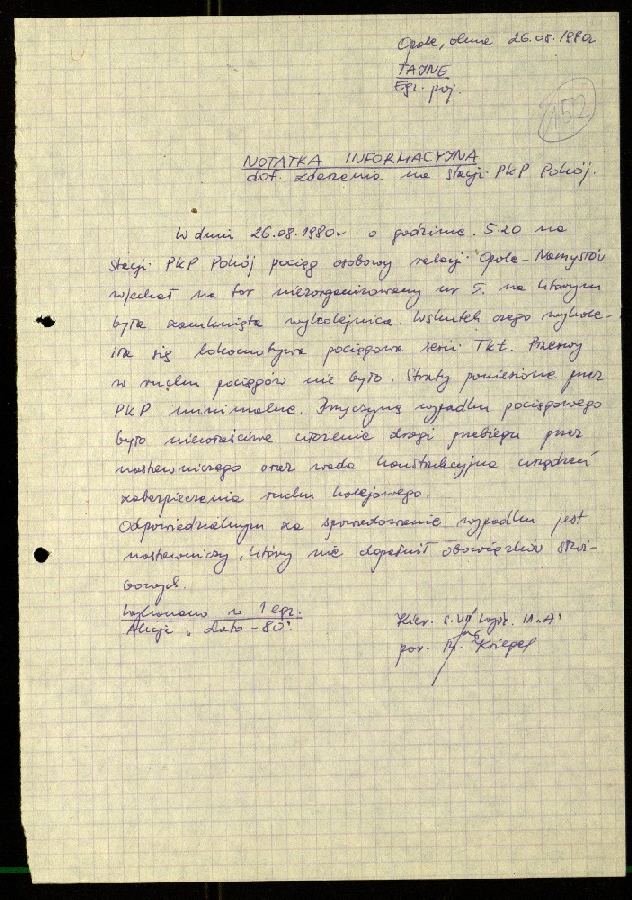 Opole, dnia 26.08.1980r
TAJNE
Egz. poj.
152
NOTATKA INFORMACYJNA
dot. zdarzenia na stacji PKP Pokój.
W dniu 26.08.1980r. o godzinie 5.20 na
stacji PKP Pokój pociąg osobowy relacji Opole - Namysłów
wjechał na tor niezorganizowany nr 5. na którym
była zamknięta wykolejnica. Wskutek czego wykole-
iła się lokomotywa pociągowa serii TKt. Przerwy
w ruchu pociągów nie było. Straty poniesione przez
PKP minimalne. Przyczyną wypadku pociągowego
było niewłaściwe ułożenie drogi przebiegu przez
nastawniczego oraz wada konstrukcyjna urządzeń
zabezpieczenia ruchu kolejowego.
Odpowiedzialnym za spowodowanie wypadku jest
nastawniczy, który nie dopełnił obowiązków służ-
bowych.
Wykonano w 1 egz.
Akcja "Lato-80"
por. Kriegel